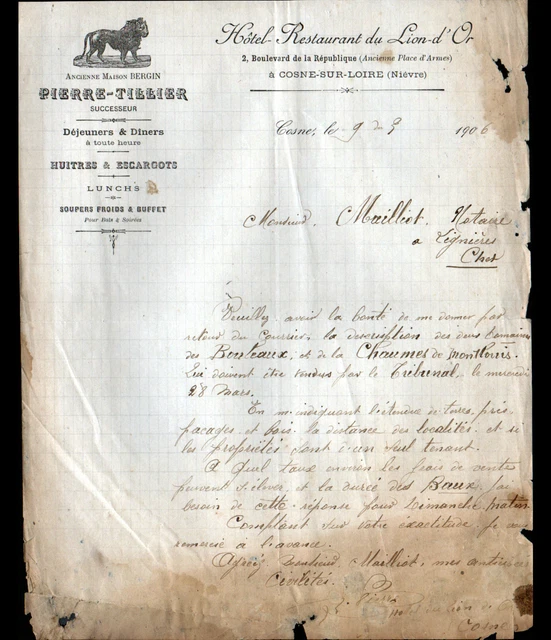 Hôtel-Restaurant du Lion-d'Or
2, Boulevard de la République (Ancienne Place d'Armes)
à COSNE-SUR-LOIRE (Nièvre)
ANCIENNE MAISON BERGIN
PIERRE-TILLIER
SUCCESSEUR
Déjeuners & Dîners
à toute heure
HUITRES & ESCARGOTS
LUNCHS
SOUPERS FROIDS & BUFFET
Pour Bals & Soirées
Cosne, le 9 1906
Monsieur Mailliot, Notaire
a Lignières
Cher
Veuillez avoir la bonté de me donner par
retour du courrier, la description des deux domaines
des Bonteaux, et de la Chaumes de Montlouis.
Qui doivent être vendus par le Tribunal, le mercredi
28 Mars.
En m'indiquant l'étendue de terres, prés,
pacages, et bois, la distance des localités, et si
les propriétés sont d'un seul tenant.
A quel taux environ les frais de vente
peuvent s'élever, et la durée des Baux, j'ai
besoin de cette réponse pour Dimanche matin.
Comptant sur votre exactitude, je vous
remercie à l'avance.
Agréez, Monsieur Mailliot, mes
Civilités.
Hôtel du Lion
Cosne